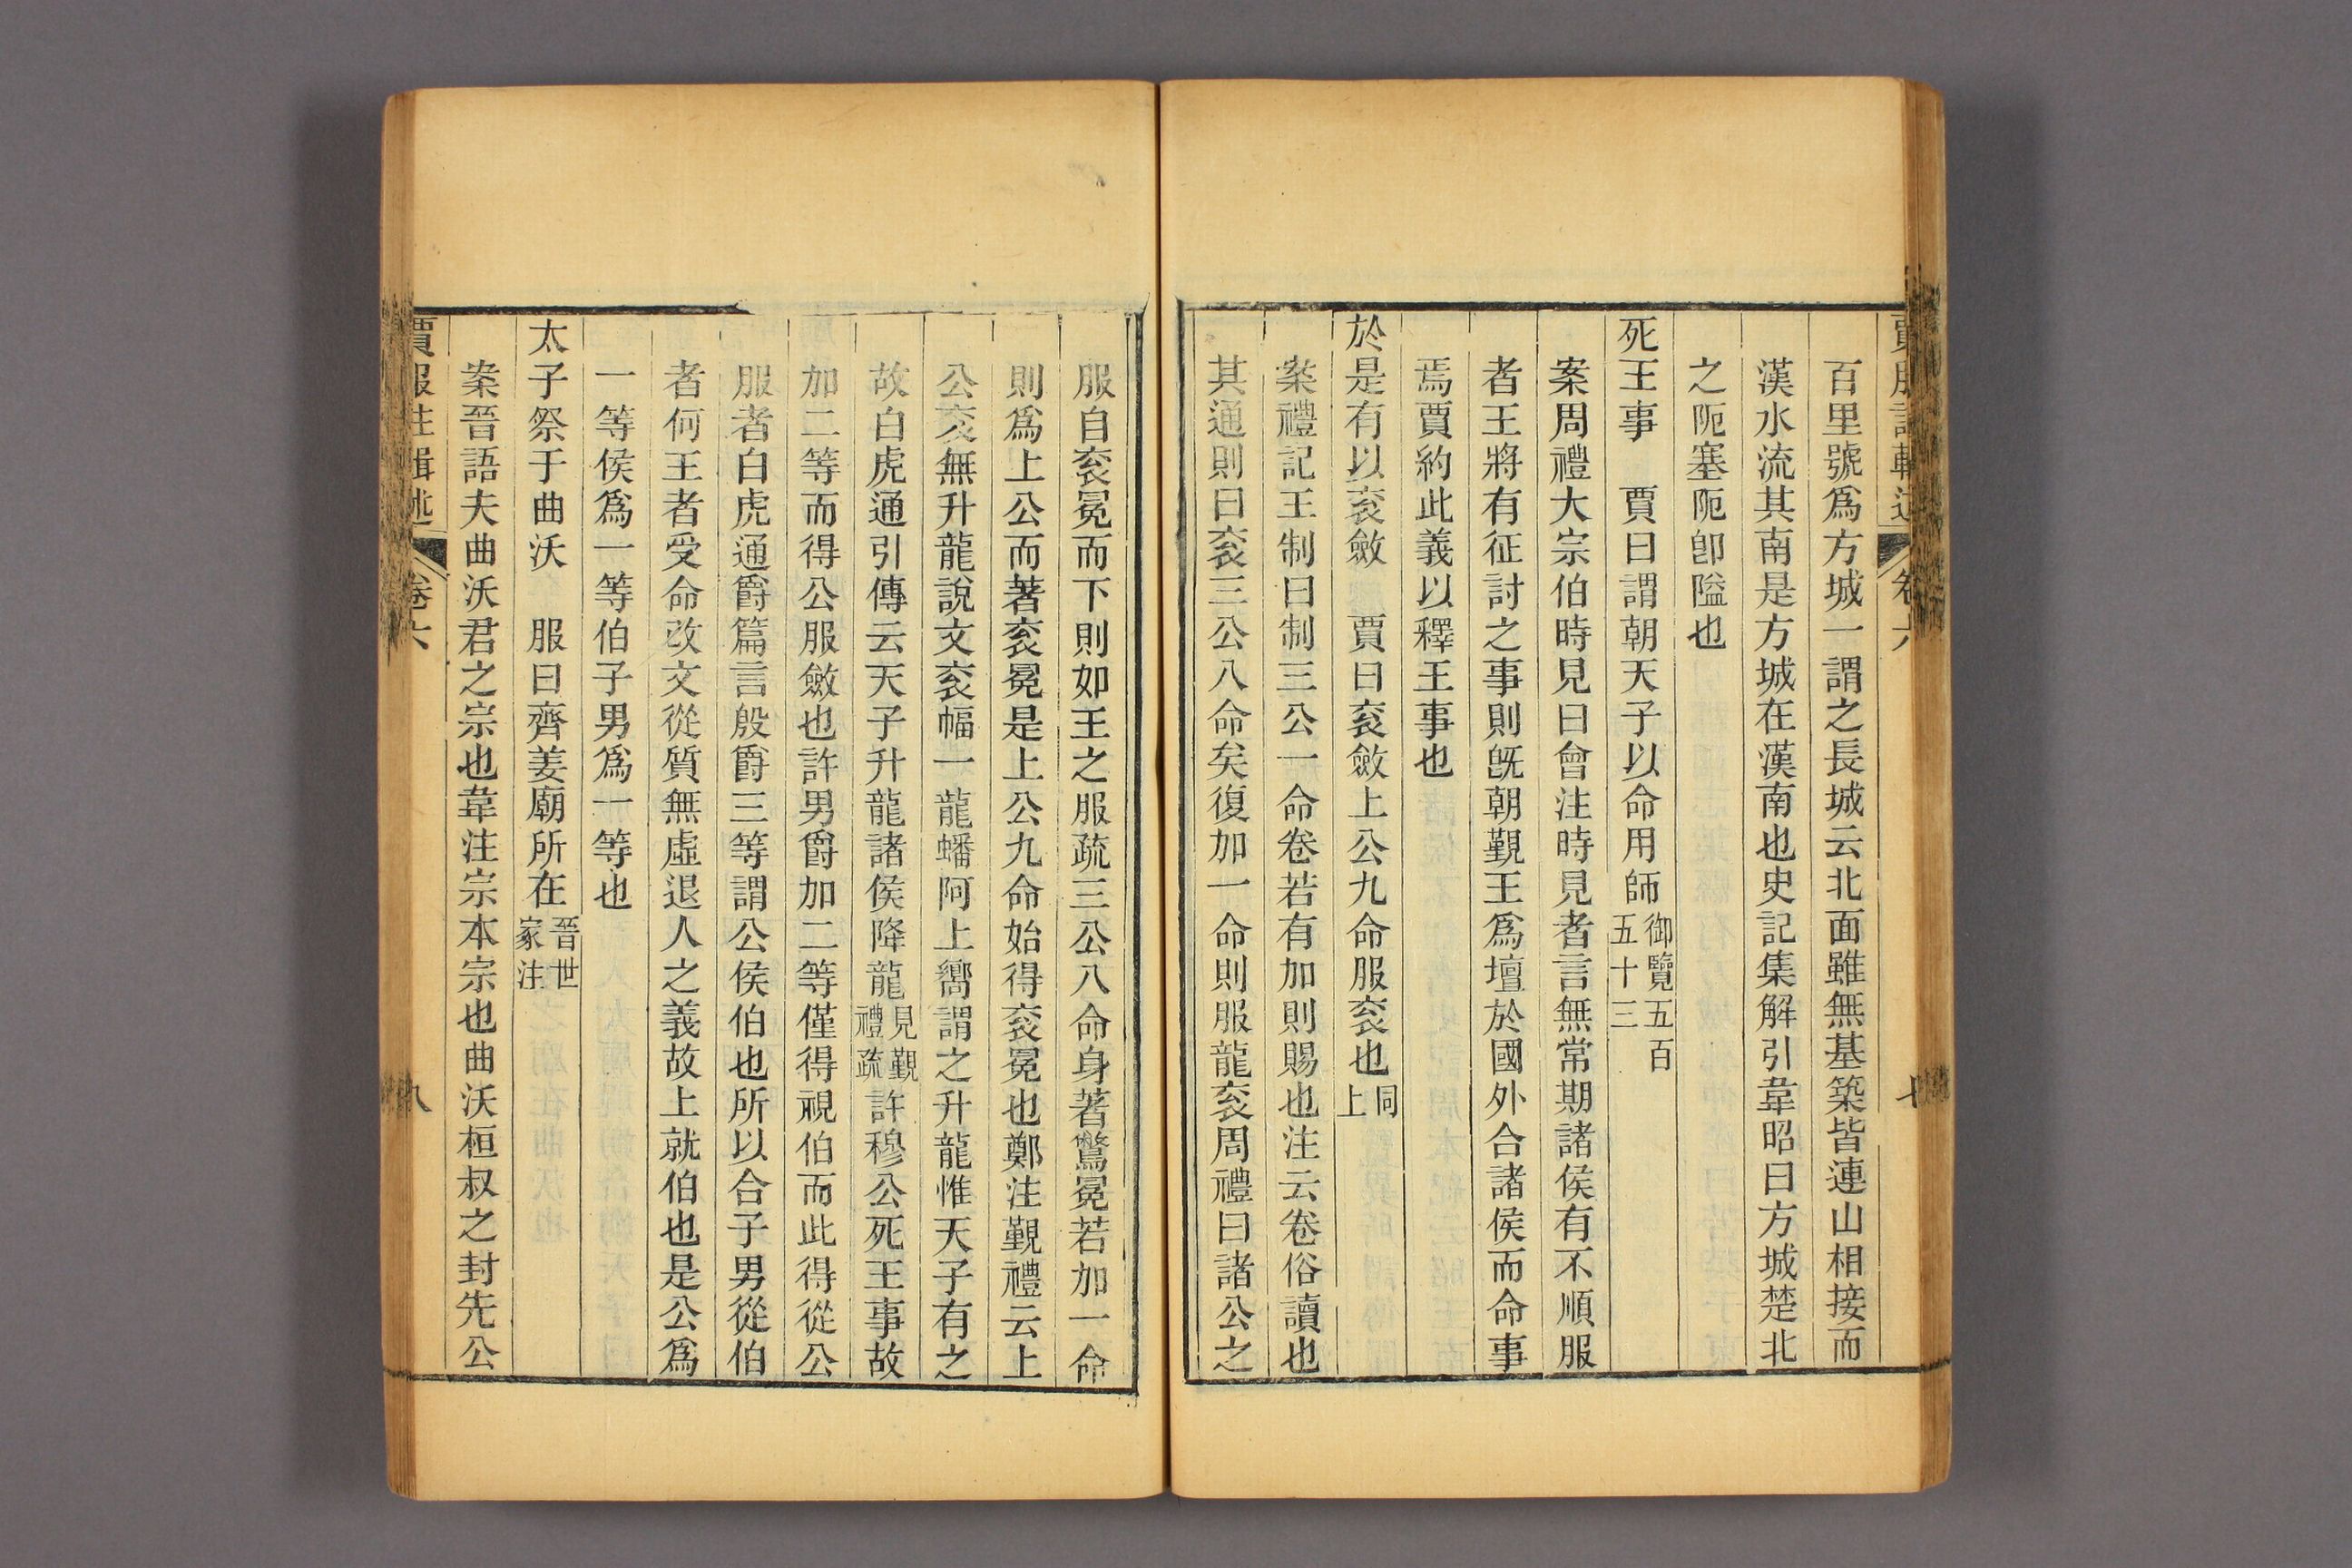 賈服註輯述 卷六 七
百里號爲方城一謂之長城云北面雖無基築皆連山相接而
漢水流其南是方城在漢南也史記集解引韋昭曰方城楚北
之阨塞阨卽隘也
死王事 賈曰謂朝天子以命用師御覽五百五十三
案周禮大宗伯時見曰會注時見者言無常期諸侯有不順服
者王將有征討之事則旣朝覲王爲壇於國外合諸侯而命事
焉賈約此義以釋王事也
於是有以袞斂 賈曰袞斂上公九命服袞也同上
案禮記王制曰制三公一命卷若有加則賜也注云卷俗讀也
其通則曰袞三公八命矣復加一命則服龍袞周禮曰諸公之
服自袞冕而下則如王之服疏三公八命身著鷩冕若加一命
則爲上公而著袞冕是上公九命始得袞冕也鄭注覲禮云上
公袞無升龍說文袞幅一龍蟠阿上嚮謂之升龍惟天子有之
故白虎通引傳云天子升龍諸侯降龍見覲禮疏許穆公死王事故
加二等而得公服斂也許男爵加二等僅得視伯而此得從公
服者白虎通爵篇言殷爵三等謂公侯伯也所以合子男從伯
者何王者受命改文從質無虛退人之義故上就伯也是公爲
一等侯爲一等伯子男爲一等也
太子祭于曲沃 服曰齊姜廟所在晉世家注
案晉語夫曲沃君之宗也韋注宗本宗也曲沃桓叔之封先公
賈服註輯述 卷六 八